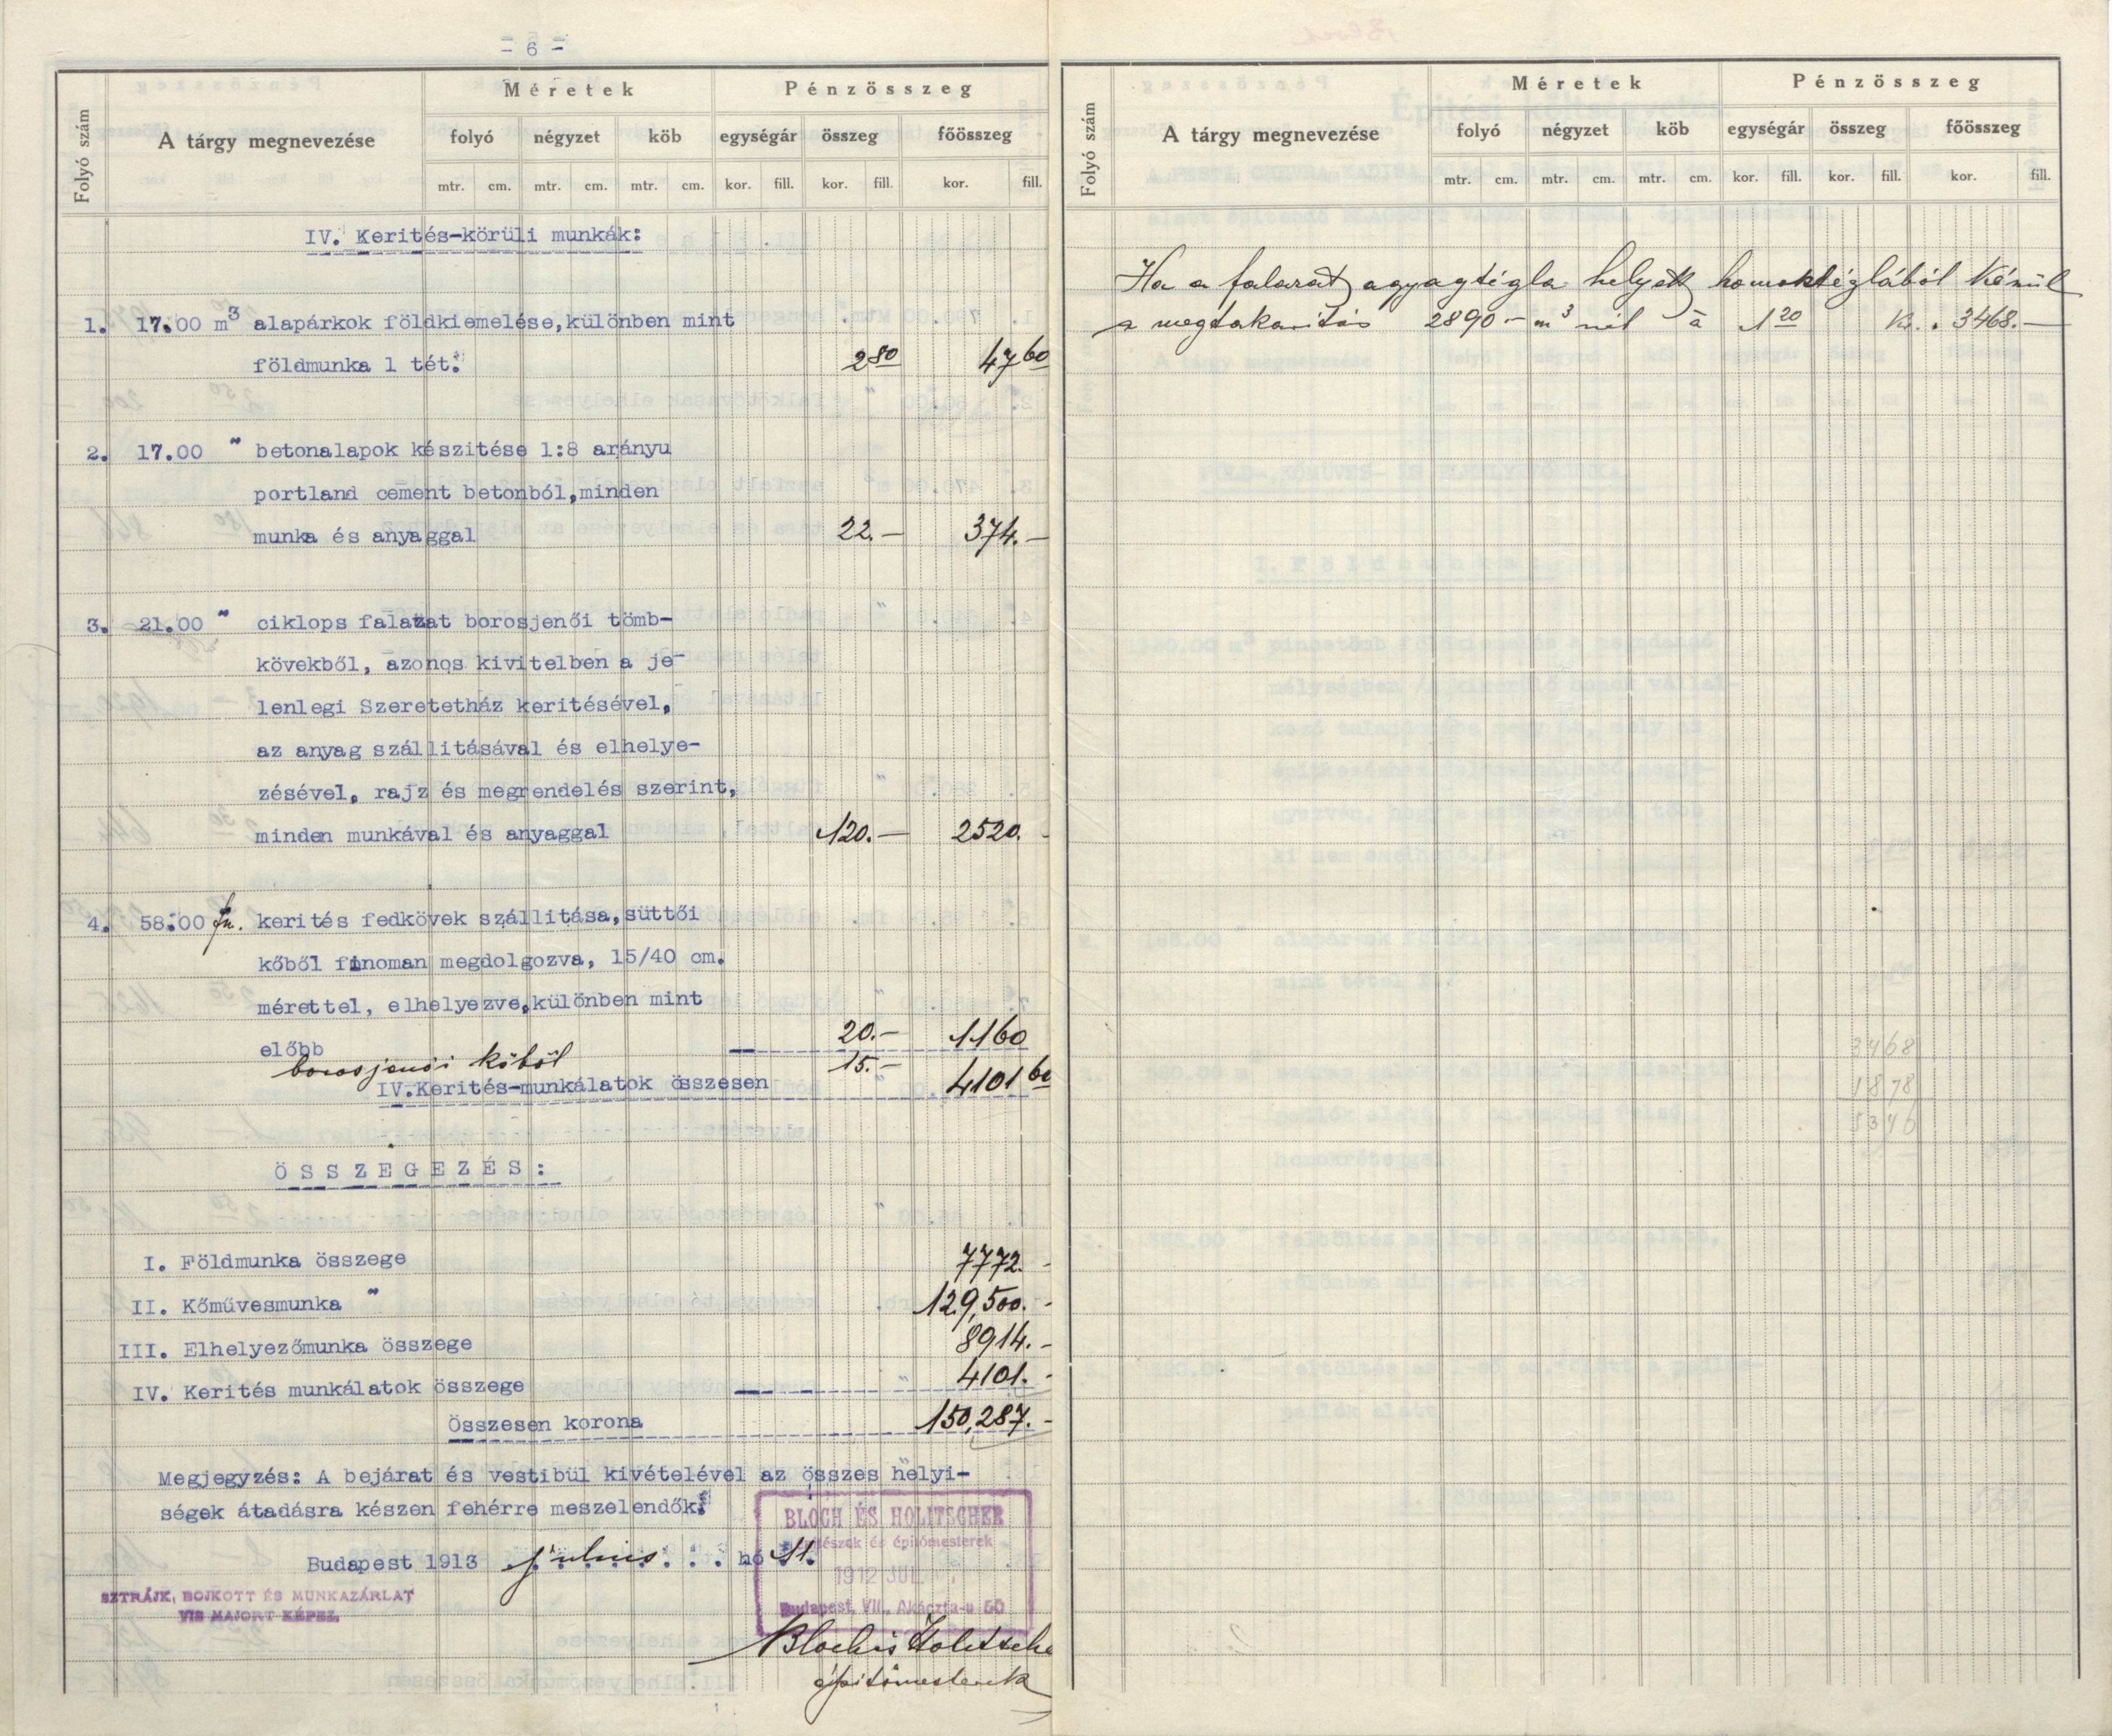 - 6 -
Folyó szám
A tárgy megnevezése
Méretek
Pénzösszeg
folyó négyzet köb egységár összeg főösszeg
mtr. cm. mtr. cm. mtr. cm. kor. fill. kor. fill. kor. fill.
IV. Kerités-körüli munkák:
1. 17.00 m³ alapárkok földkiemelése, különben mint
földmunka 1 tét. 2 80 47 60
2. 17.00 " betonalapok készitése 1:8 arányu
portland cement betonból, minden
munka és anyaggal 22.— 374.—
3. 21.00 " ciklops falazat borosjenői tömb-
kövekből, azonos kivitelben a je-
lenlegi Szeretetház keritésével,
az anyag szállitásával és elhelye-
zésével, rajz és megrendelés szerint,
minden munkával és anyaggal 120.— 2520.-
4. 58.00 fm. kerités fedkövek szállitása, süttői
kőből finoman megdolgozva, 15/40 cm.
mérettel, elhelyezve, különben mint
előbb 20.— 1160
borosjenői kőből 15.—
IV. Kerités-munkálatok összesen 4101 60
ÖSSZEGEZÉS:
I. Földmunka összege 7772.-
II. Kőművesmunka " 129,500.-
III. Elhelyezőmunka összege 8914.-
IV. Kerités munkálatok összege 4101.-
Összesen korona 150,287.-
Megjegyzés: A bejárat és vestibül kivételével az összes helyi-
ségek átadásra készen fehérre meszelendők.
Budapest 1913 julius . . . hó 11.
SZTRÁJK, BOJKOTT ÉS MUNKAZÁRLAT
VIS MAJORT KÉPEZ.
BLOCH ÉS HOLITSCHER
építészek és építőmesterek
1912 JUL
Budapest, VII., Akáczfa-u 50
Bloch és Holitscher
építőmesterek
Folyó szám
A tárgy megnevezése
Méretek
Pénzösszeg
folyó négyzet köb egységár összeg főösszeg
mtr. cm. mtr. cm. mtr. cm. kor. fill. kor. fill. kor. fill.
Ha a falazat agyagtégla helyett homoktéglából készül
a megtakaritás 2890.— m³ nél à 1 20 Kr. 3468.—
3468
1878
5346